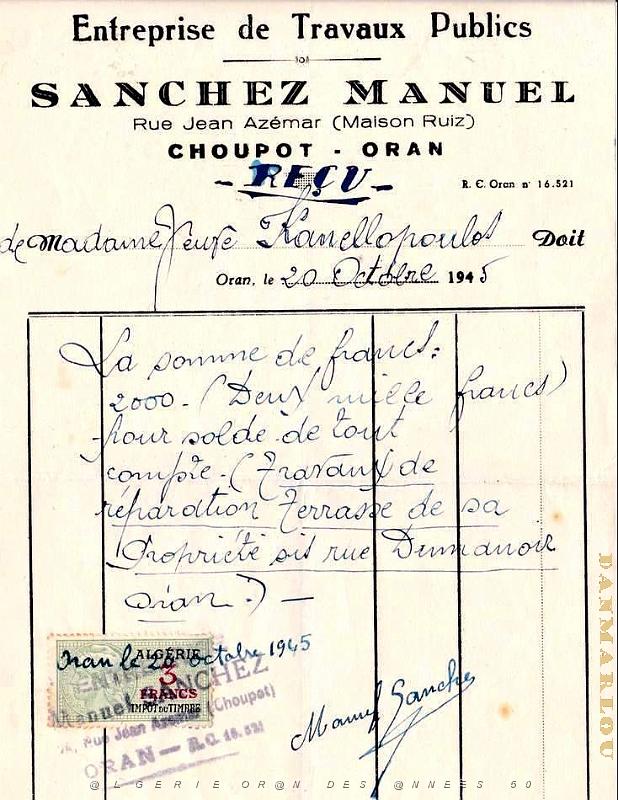 Entreprise de Travaux Publics
SANCHEZ MANUEL
Rue Jean Azémar (Maison Ruiz)
CHOUPOT - ORAN
- REÇU -
R. C. Oran n° 16.521
de Madame Veuve Kanellopoulos Doit
Oran, le 20 Octobre 1945
La somme de francs:
2000 - (Deux mille francs)
pour solde de tout
compte - (Travaux de
réparation Terrasse de sa
Propriété sis rue Dumanoir
Oran.) —
Oran le 20 Octobre 1945
ALGÉRIE
3
FRANCS
IMPÔT DU TIMBRE
Manuel SANCHEZ
Rue Jean Azémar (Choupot)
ORAN - R.C. 16.521
Manuel Sanchez
DANMARLOU
@LGERIE OR@N DES @NNEES 50